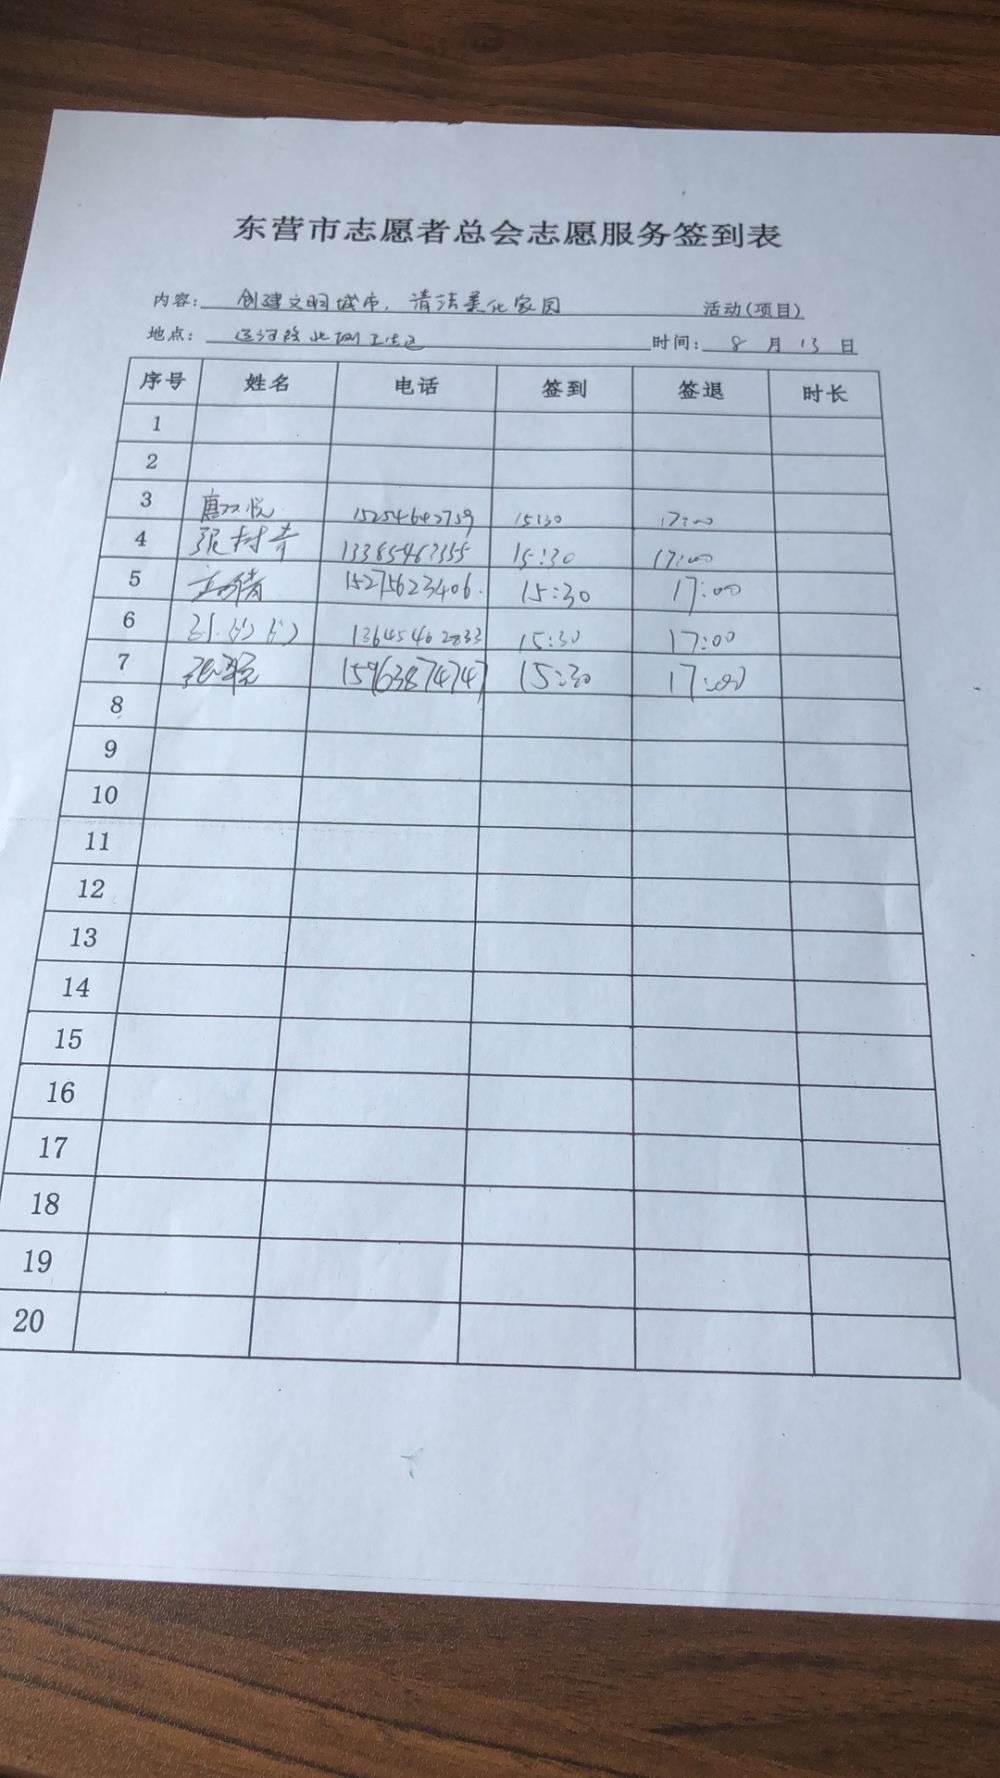 东营市志愿者总会志愿服务签到表
内容: 创建文明城市，清洁美化家园 活动(项目)
地点: 运河路北侧 时间: 8 月 13 日
序号 姓名 电话 签到 签退 时长
1
2
3 唐双悦 15254642759 15:30 17:00
4 张村青 15:30 17:00
5 15275623406. 15:30 17:00
6 13645462833 15:30 17:00
7 15963874747 15:30 17:00
8
9
10
11
12
13
14
15
16
17
18
19
20